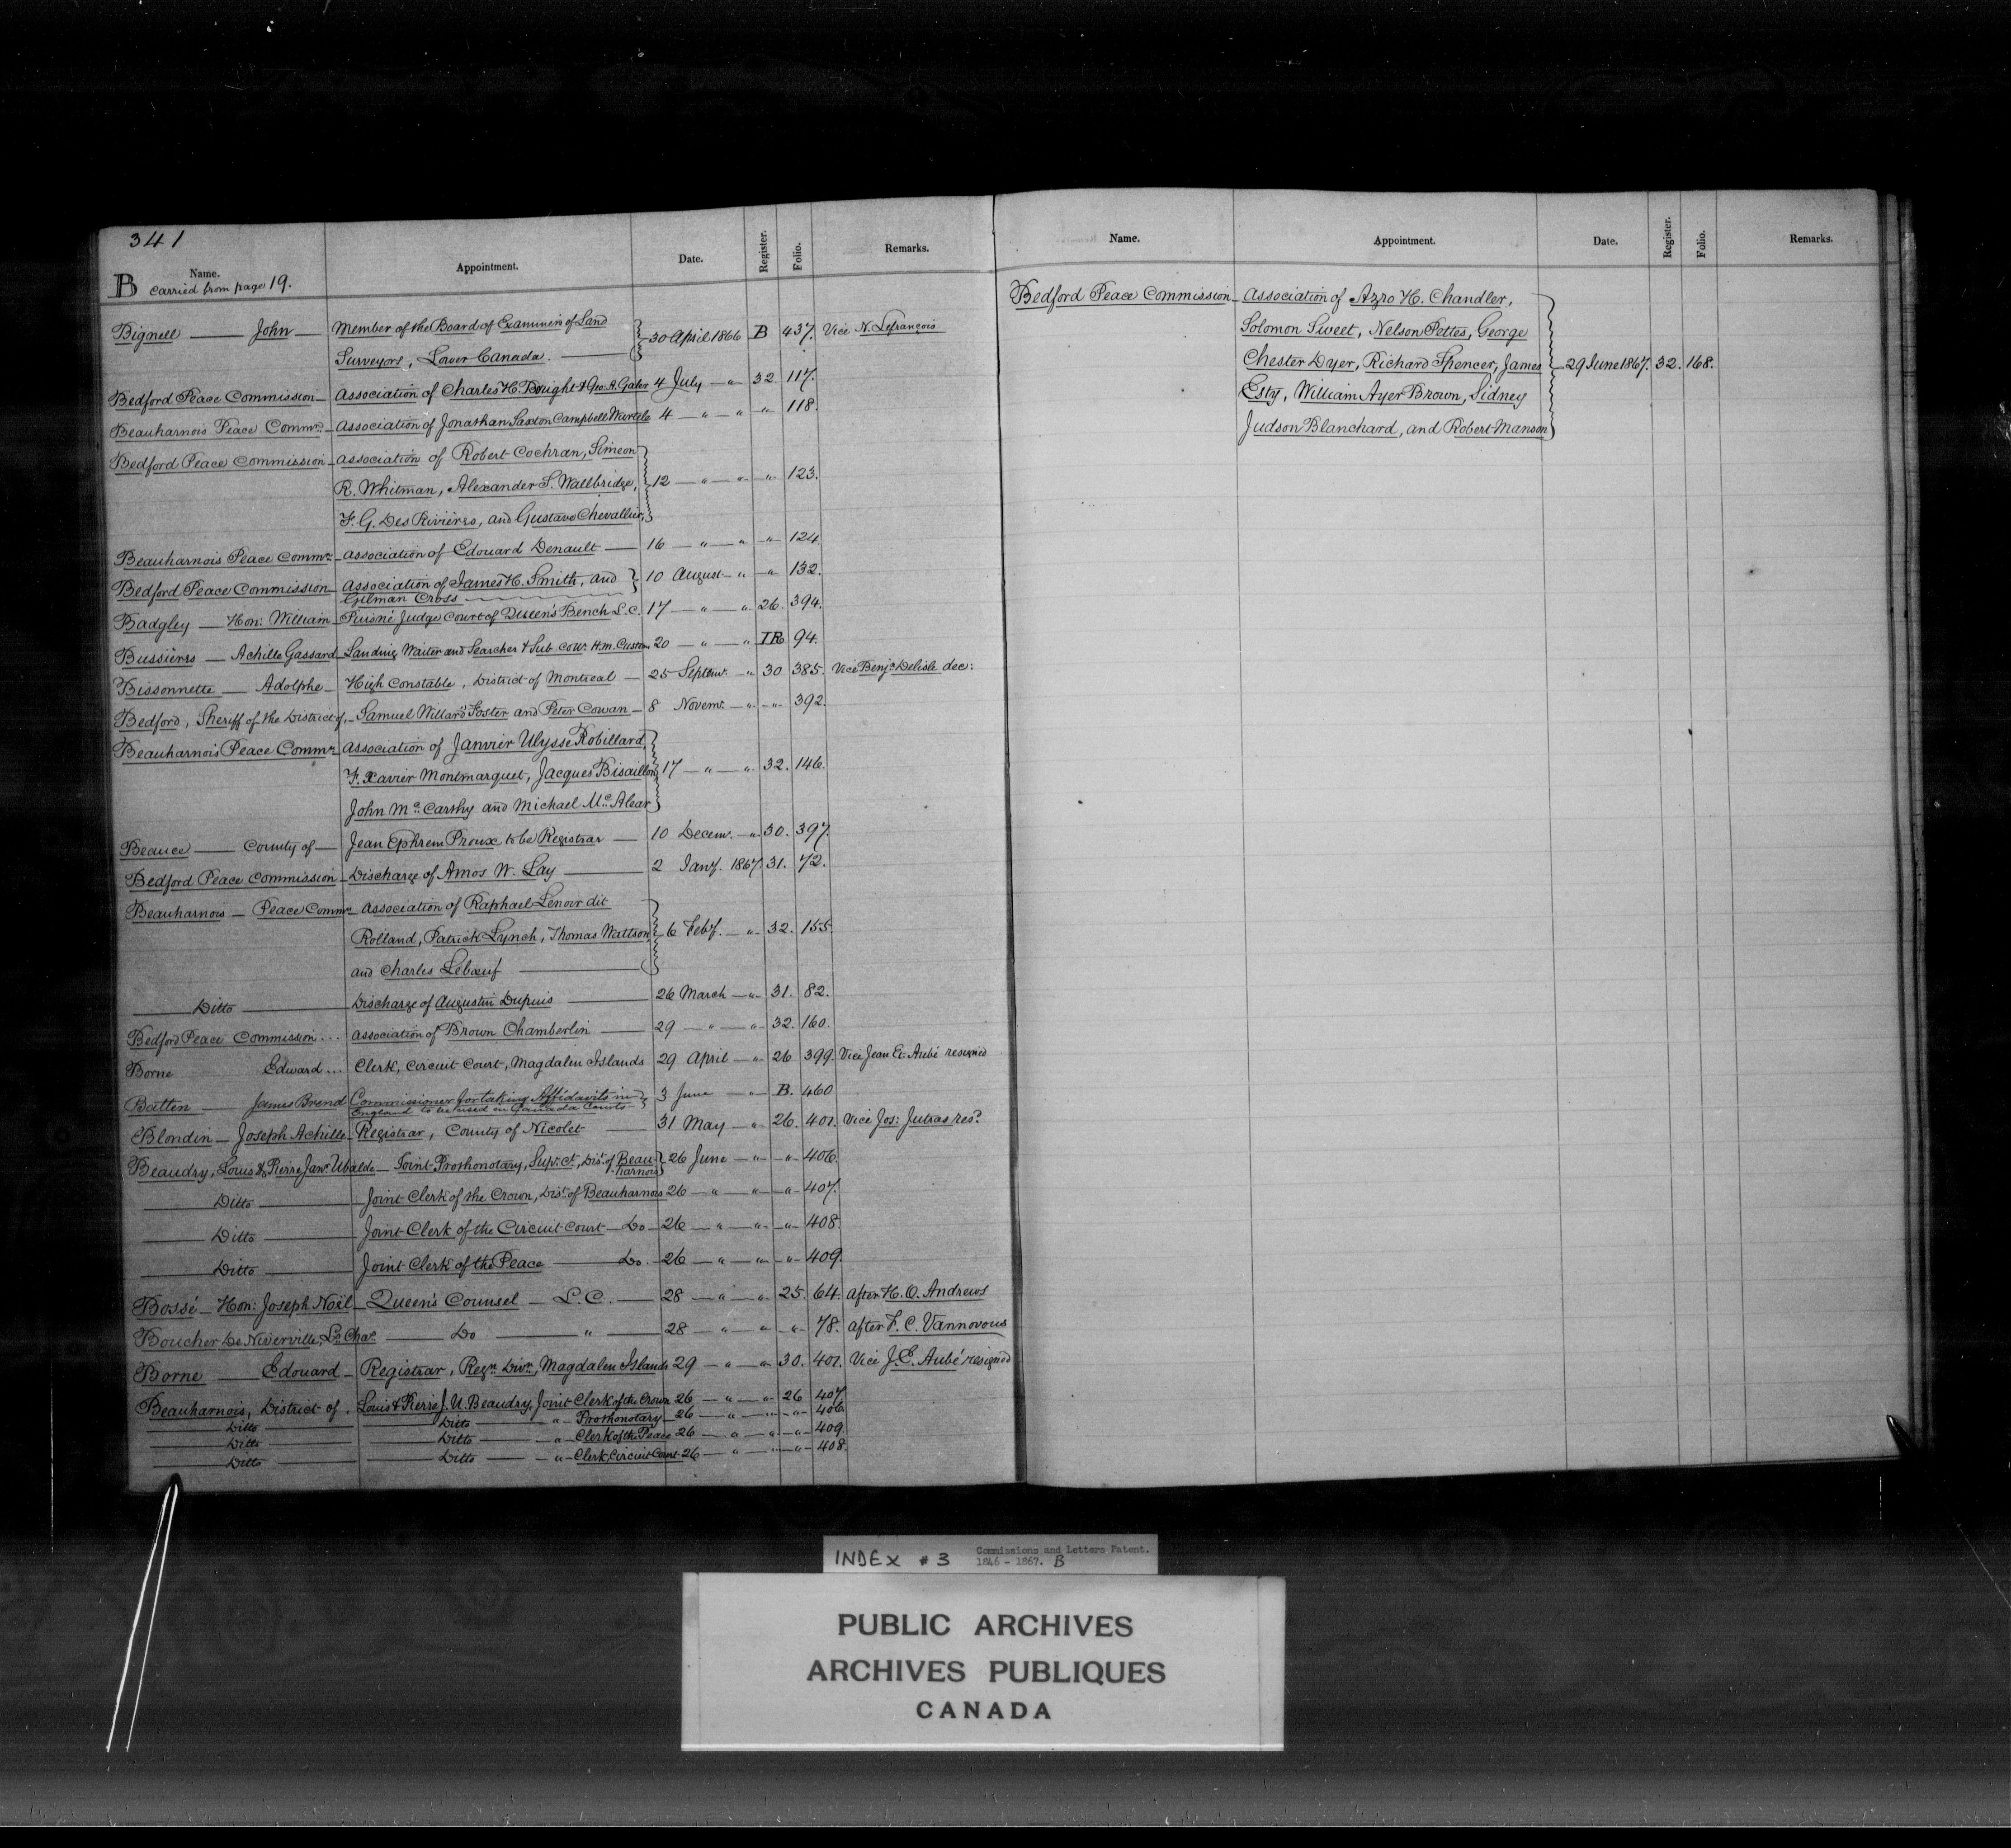 341
Name. Appointment. Date. Register. Folio. Remarks.
B carried from page 19.
Bignell — John — Member of the Board of Examiners of Land
Surveyors, Lower Canada. — 30 April 1866 B 437. Vice N. Lefrançois
Bedford Peace Commission — Association of Charles H. Bought & Geo: A. Gater 4 July — " — 32 117.
Beauharnois Peace Commn. — Association of Jonathan Saxton Campbell Wurtele 4 — " — " — " — 118.
Bedford Peace Commission — Association of Robert Cochran, Simeon
R. Whitman, Alexander S. Wallbridge, 12 — " — " — " — 123.
F. G. Des Rivières, and Gustave Chevallier,
Beauharnois Peace Commn. — Association of Edouard Denault — 16 — " — " — " — 124.
Bedford Peace Commission — Association of James H. Smith, and 10 August — " — " — 132.
Gilman Cross
Badgley — Hon: William — Puisné Judge Court of Queen's Bench L.C. 17 — " — " 26. 394.
Bussières — Achille Gassard — Landing Waiter and Searcher & Sub. Colr. H.M. Customs 20 — " — " IR 94.
Bissonnette — Adolphe — High Constable, District of Montreal — 25 Septemr. — " 30 385. Vice Benjn. Delisle dec:
Bedford, Sheriff of the District of, — Samuel Willard Foster and Peter Cowan — 8 Novemr. — " — " — 392.
Beauharnois Peace Commn. — Association of Janvier Ulysse Robillard,
F. Xavier Montmarquet, Jacques Bisaillon, 17 — " — " 32. 146.
John Mc. Carthy and Michael Mc. Alear
Beauce — County of — Jean Ephrem Proux to be Registrar — 10 Decemr. — " 30. 397.
Bedford Peace Commission — Discharge of Amos W. Lay — 2 Jany. 1867. 31. 72.
Beauharnois — Peace Commn. — Association of Raphael Lenoir dit
Rolland, Patrick Lynch, Thomas Wattson, 6 Feby. — " 32. 155.
and Charles Lebœuf —
Ditto — Discharge of Augustin Dupuis — 26 March — " 31. 82.
Bedford Peace Commission ... Association of Brown Chamberlin — 29 — " — " 32. 160.
Borne Edward ... Clerk, Circuit Court, Magdalen Islands 29 April — " 26 399. Vice Jean E. Aubé resigned
Batten — James Brend Commissioner for taking Affidavits in 3 June — " B. 460
England to be used in Canada Courts
Blondin — Joseph Achille — Registrar, County of Nicolet — 31 May — " 26. 401. Vice Jos: Jutras resd.
Beaudry, Louis & Pierre Janr. Ubalde — Joint Prothonotary, Supr. Ct., Dist. of Beau- 26 June — " — " — 406.
harnois
Ditto — Joint Clerk of the Crown, Dist. of Beauharnois 26 — " — " — " — 407.
Ditto — Joint Clerk of the Circuit Court — Do — 26 — " — " — " — 408.
Ditto — Joint Clerk of the Peace — Do. — 26 — " — " — " — 409.
Bossé — Hon: Joseph Noël — Queen's Counsel — L.C. — 28 — " — " 25. 64. After H. O. Andrews
Boucher De Niverville, Ls. Chas. — Do " — 28 — " — " — " — 78. After F. C. Vannovous
Borne — Edouard — Registrar, Regn. Divn., Magdalen Islands 29 — " — " 30. 401. Vice J. E. Aubé resigned
Beauharnois, District of. Louis & Pierre J. U. Beaudry, Joint Clerk of the Crown 26 — " — " 26 407.
Ditto — Ditto — " — Prothonotary — 26 — " — " — " — 406.
Ditto — Ditto — " — Clerk of the Peace 26 — " — " — " — 409.
Ditto — Ditto — " — Clerk, Circuit Court 26 — " — " — " — 408.
Name. Appointment. Date. Register. Folio. Remarks.
Bedford Peace Commission — Association of Azro H. Chandler,
Solomon Sweet, Nelson Pettes, George
Chester Dyer, Richard Spencer, James 29 June 1867. 32. 168.
Esty, William Ayer Brown, Sidney
Judson Blanchard, and Robert Manson
INDEX # 3 Commissions and Letters Patent.
1846 - 1867. B
PUBLIC ARCHIVES
ARCHIVES PUBLIQUES
CANADA